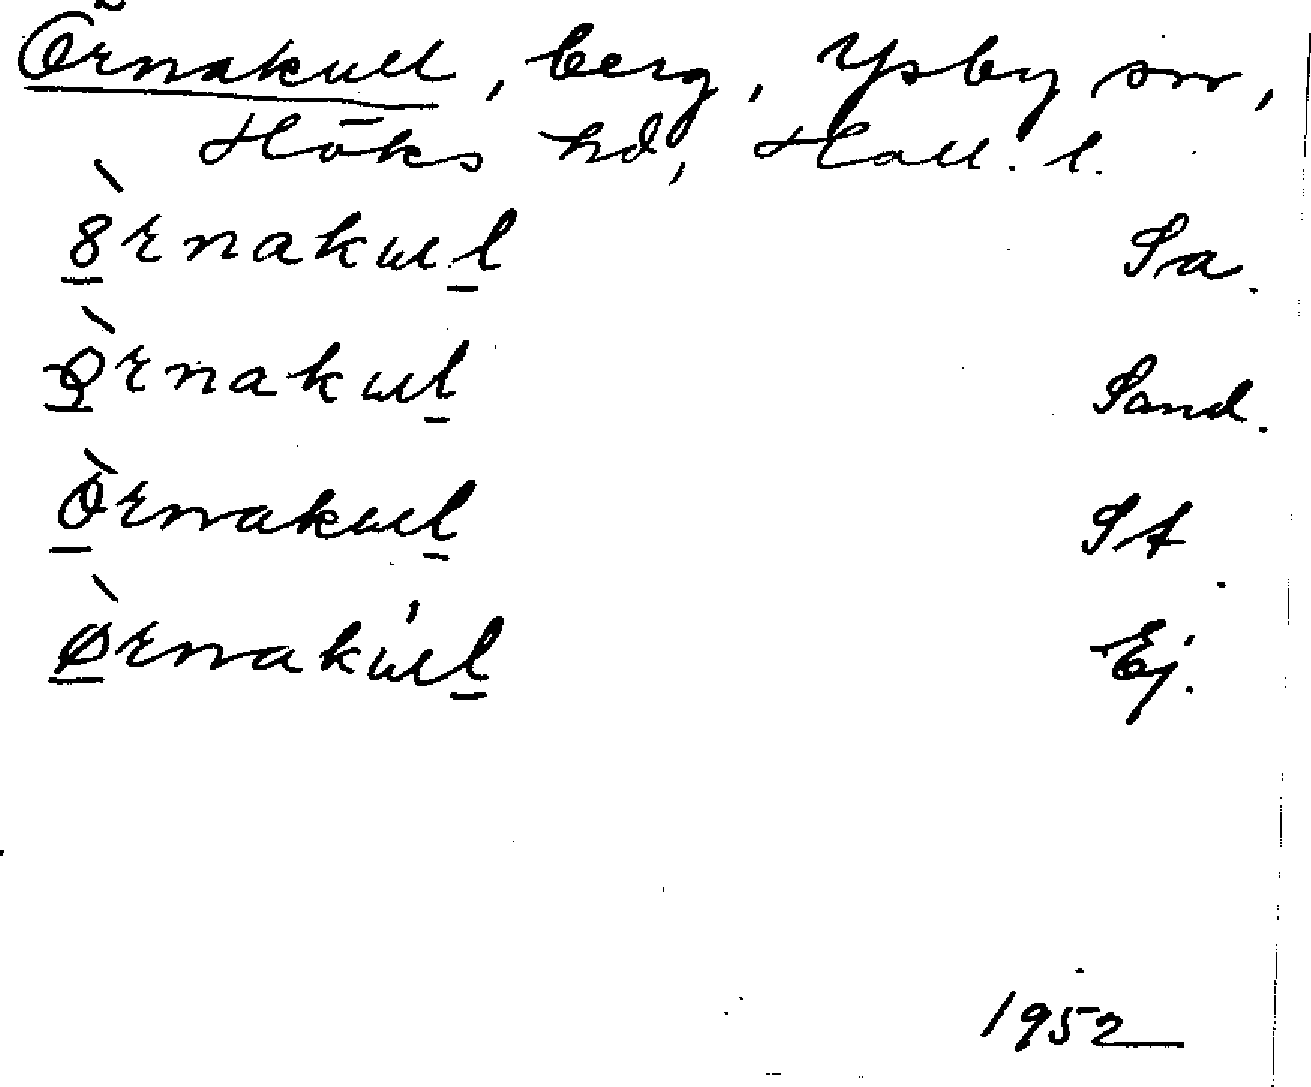 Örnakull, berg, Ysby sn,
Höks hd, Hall. l.
8̀rnakul̲l Sa.
Ò̲rnakul̲ Sand.
Ò̲rnakul̲l St.
Ø̲̀rnakúl̲l Ej.
1952